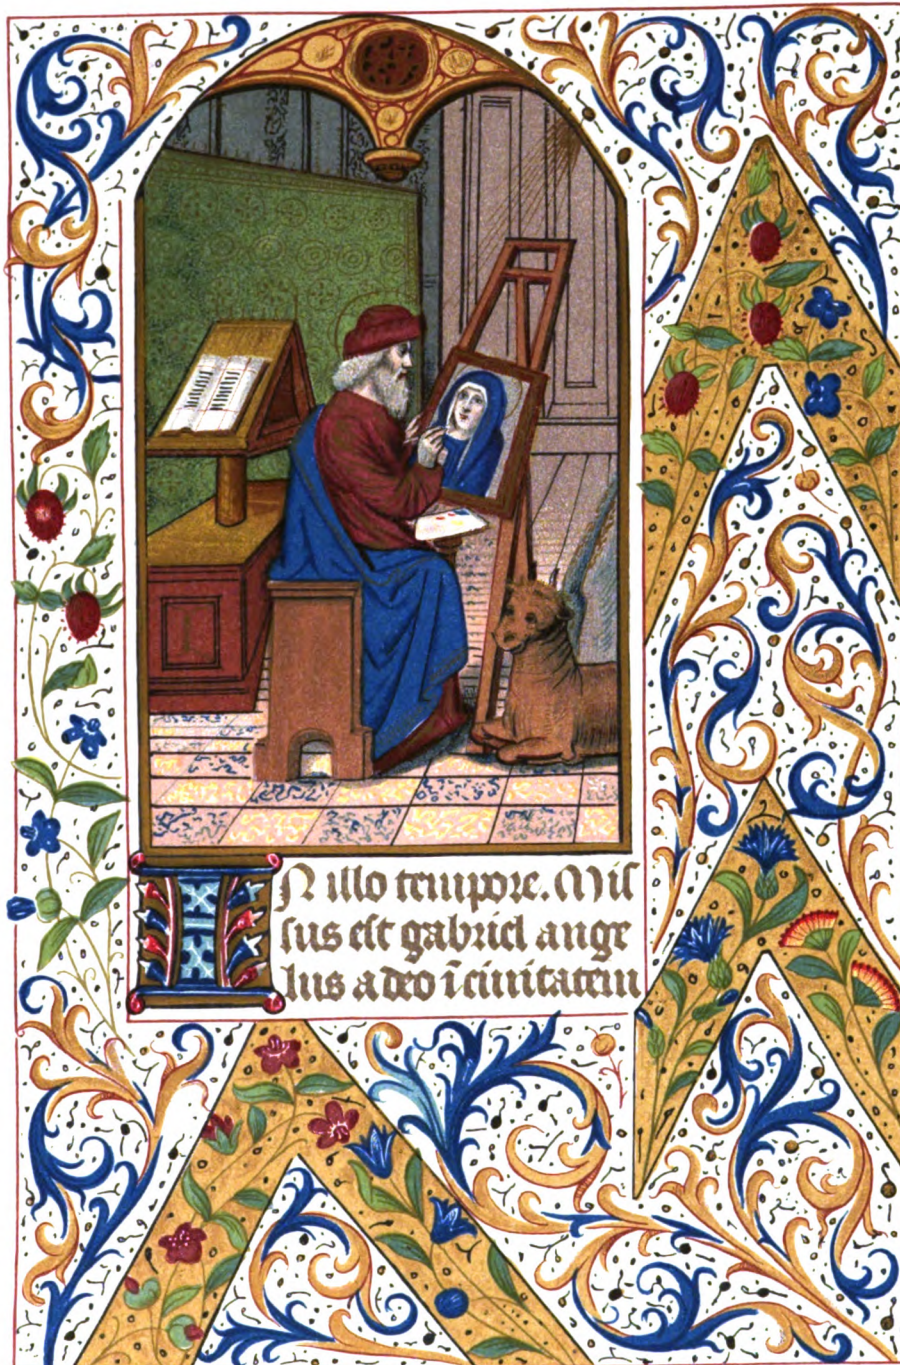 IN illo tempore. Mis
sus est gabriel ange
lus a deo ī civitatem